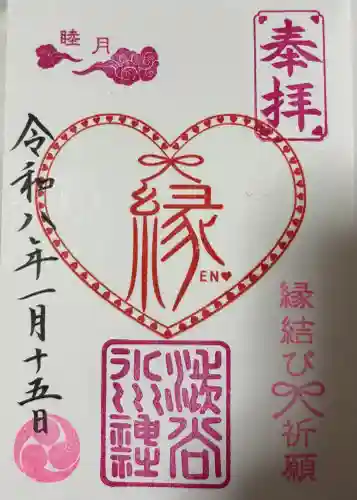 奉拝
睦月
縁
EN
縁結び祈願
渋谷
氷川神社
令和八年一月十五日